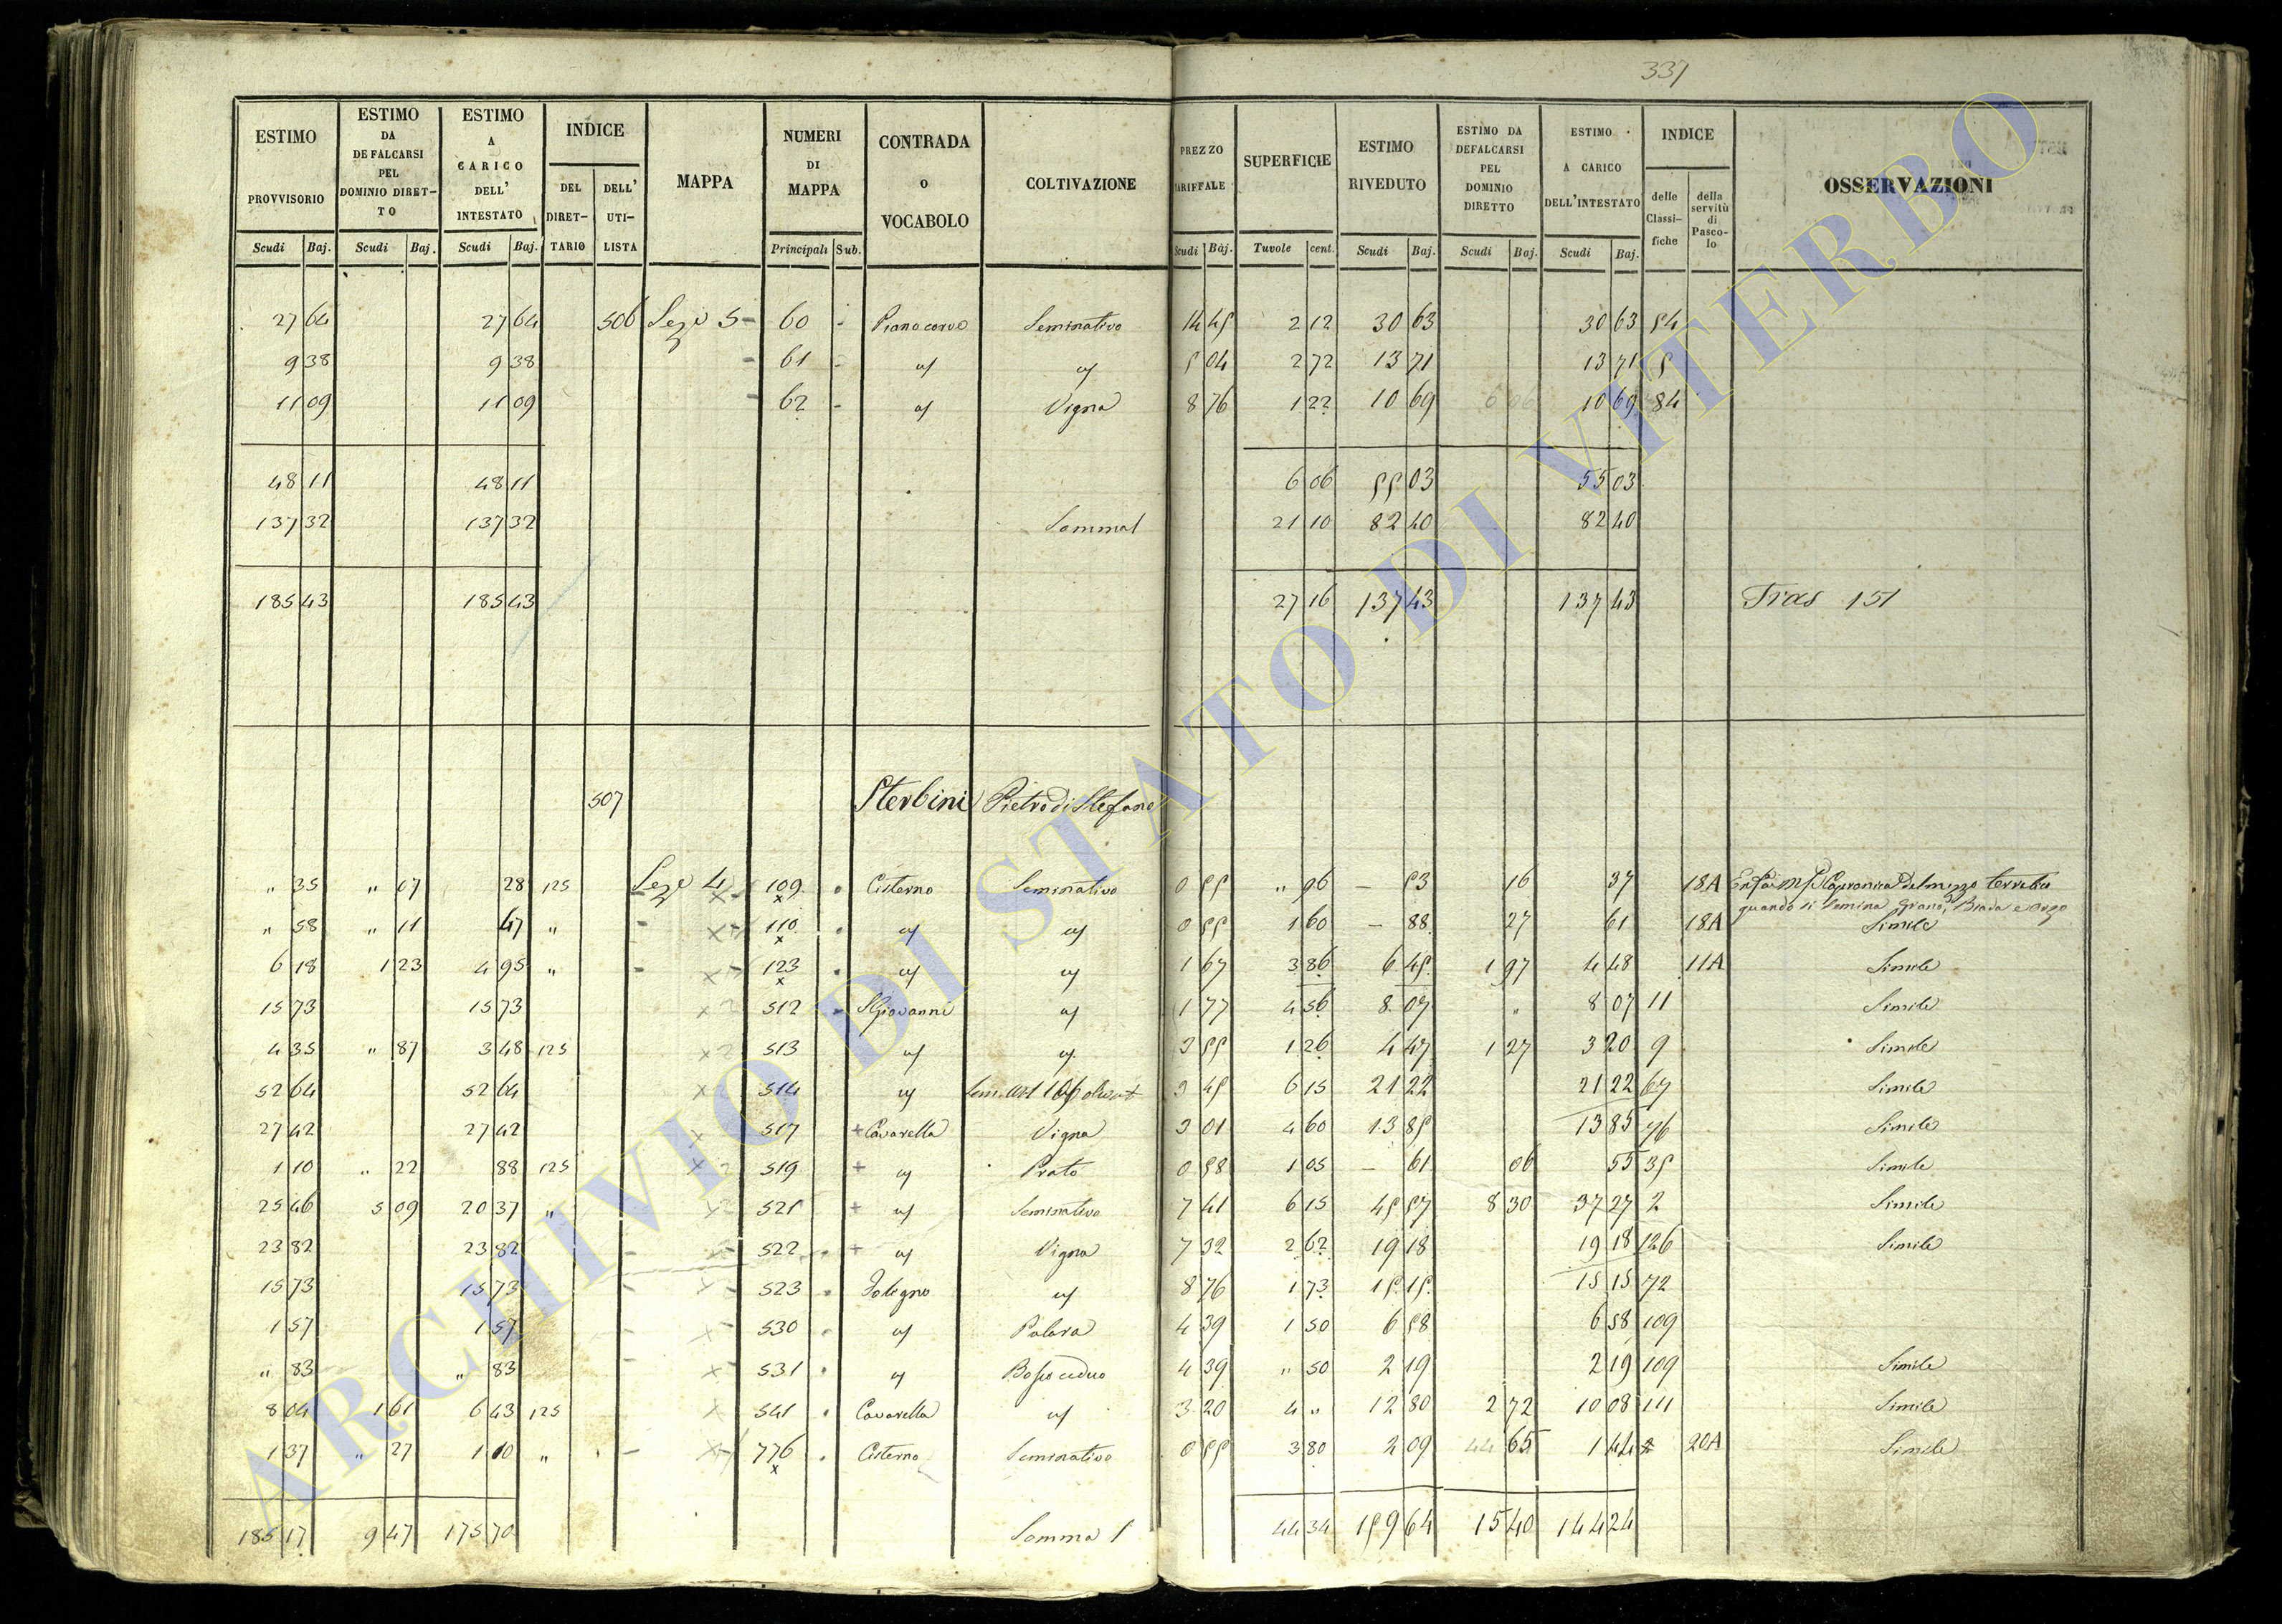 337
ESTIMO PROVVISORIO Scudi Baj. ESTIMO DA DEFALCARSI PEL DOMINIO DIRET-TO Scudi Baj. ESTIMO A CARICO DELL' INTESTATO Scudi Baj. INDICE DEL DIRET-TARIO DELL' UTI-LISTA MAPPA NUMERI DI MAPPA Principali Sub. CONTRADA O VOCABOLO COLTIVAZIONE PREZZO TARIFFALE Scudi Baj. SUPERFICIE Tavole cent. ESTIMO RIVEDUTO Scudi Baj. ESTIMO DA DEFALCARSI PEL DOMINIO DIRETTO Scudi Baj. ESTIMO A CARICO DELL'INTESTATO Scudi Baj. INDICE delle Classi-fiche della servitù di Pasco-lo OSSERVAZIONI
27 64 27 64 506 Sez.e 5 - 60 - Piano corvo Seminativo 14 45 2 12 30 63 30 63 54
9 38 9 38 - 61 - " " 5 04 2 72 13 71 13 71 5
11 09 11 09 - 62 - " Vigna 8 76 1 22 10 69 10 69 84
48 11 48 11 6 06 55 03 55 03
137 32 137 32 Somma 1 21 10 82 40 82 40
185 43 185 43 27 16 137 43 137 43 Tras 151
507 Sterbini Pietro di Stefano
" 35 " 07 28 125 Sez.e 4 109 Cisterno Seminativo 0 55 " 96 - 53 16 37 18A Capranica Del mezzo terratico
quando si semina grano, Biada e orzo
" 58 " 11 47 " - 110 " " 0 55 1 60 - 88 27 61 18A Simile
6 18 1 23 4 95 " - 123 " " 1 67 3 86 6 45 1 97 4 48 11A Simile
15 73 15 73 512 S Giovanni " 1 77 4 56 8 07 " 8 07 11 Simile
4 35 " 87 3 48 125 513 " " 3 55 1 26 4 47 1 27 3 20 9 Simile
52 64 52 64 514 " 3 45 6 15 21 22 21 22 67 Simile
27 42 27 42 517 + Cavarella Vigna 3 01 4 60 13 85 13 85 76 Simile
1 10 " 22 88 125 519 + " Prato 0 58 1 05 - 61 06 55 35 Simile
25 46 5 09 20 37 " 521 + " Seminativo 7 41 6 15 45 57 8 30 37 27 2 Simile
23 82 23 82 - 522 + " Vigna 7 32 2 62 19 18 19 18 126 Simile
15 73 15 73 - 523 Folegno " 8 76 1 73 15 15 15 15 72
1 57 1 57 - 530 " Palara 4 39 1 50 6 58 6 58 109
" 83 " 83 - 531 " Bosco ceduo 4 39 " 50 2 19 2 19 109 Simile
8 04 1 61 6 43 125 541 Cavarella " 3 20 4 " 12 80 2 72 10 08 111 Simile
1 37 " 27 1 10 " - 776 Cisterno Seminativo 0 55 3 80 2 09 65 1 44 20A Simile
185 17 9 47 175 70 Somma 1 44 34 159 64 15 40 144 24
ARCHIVIO DI STATO DI VITERBO